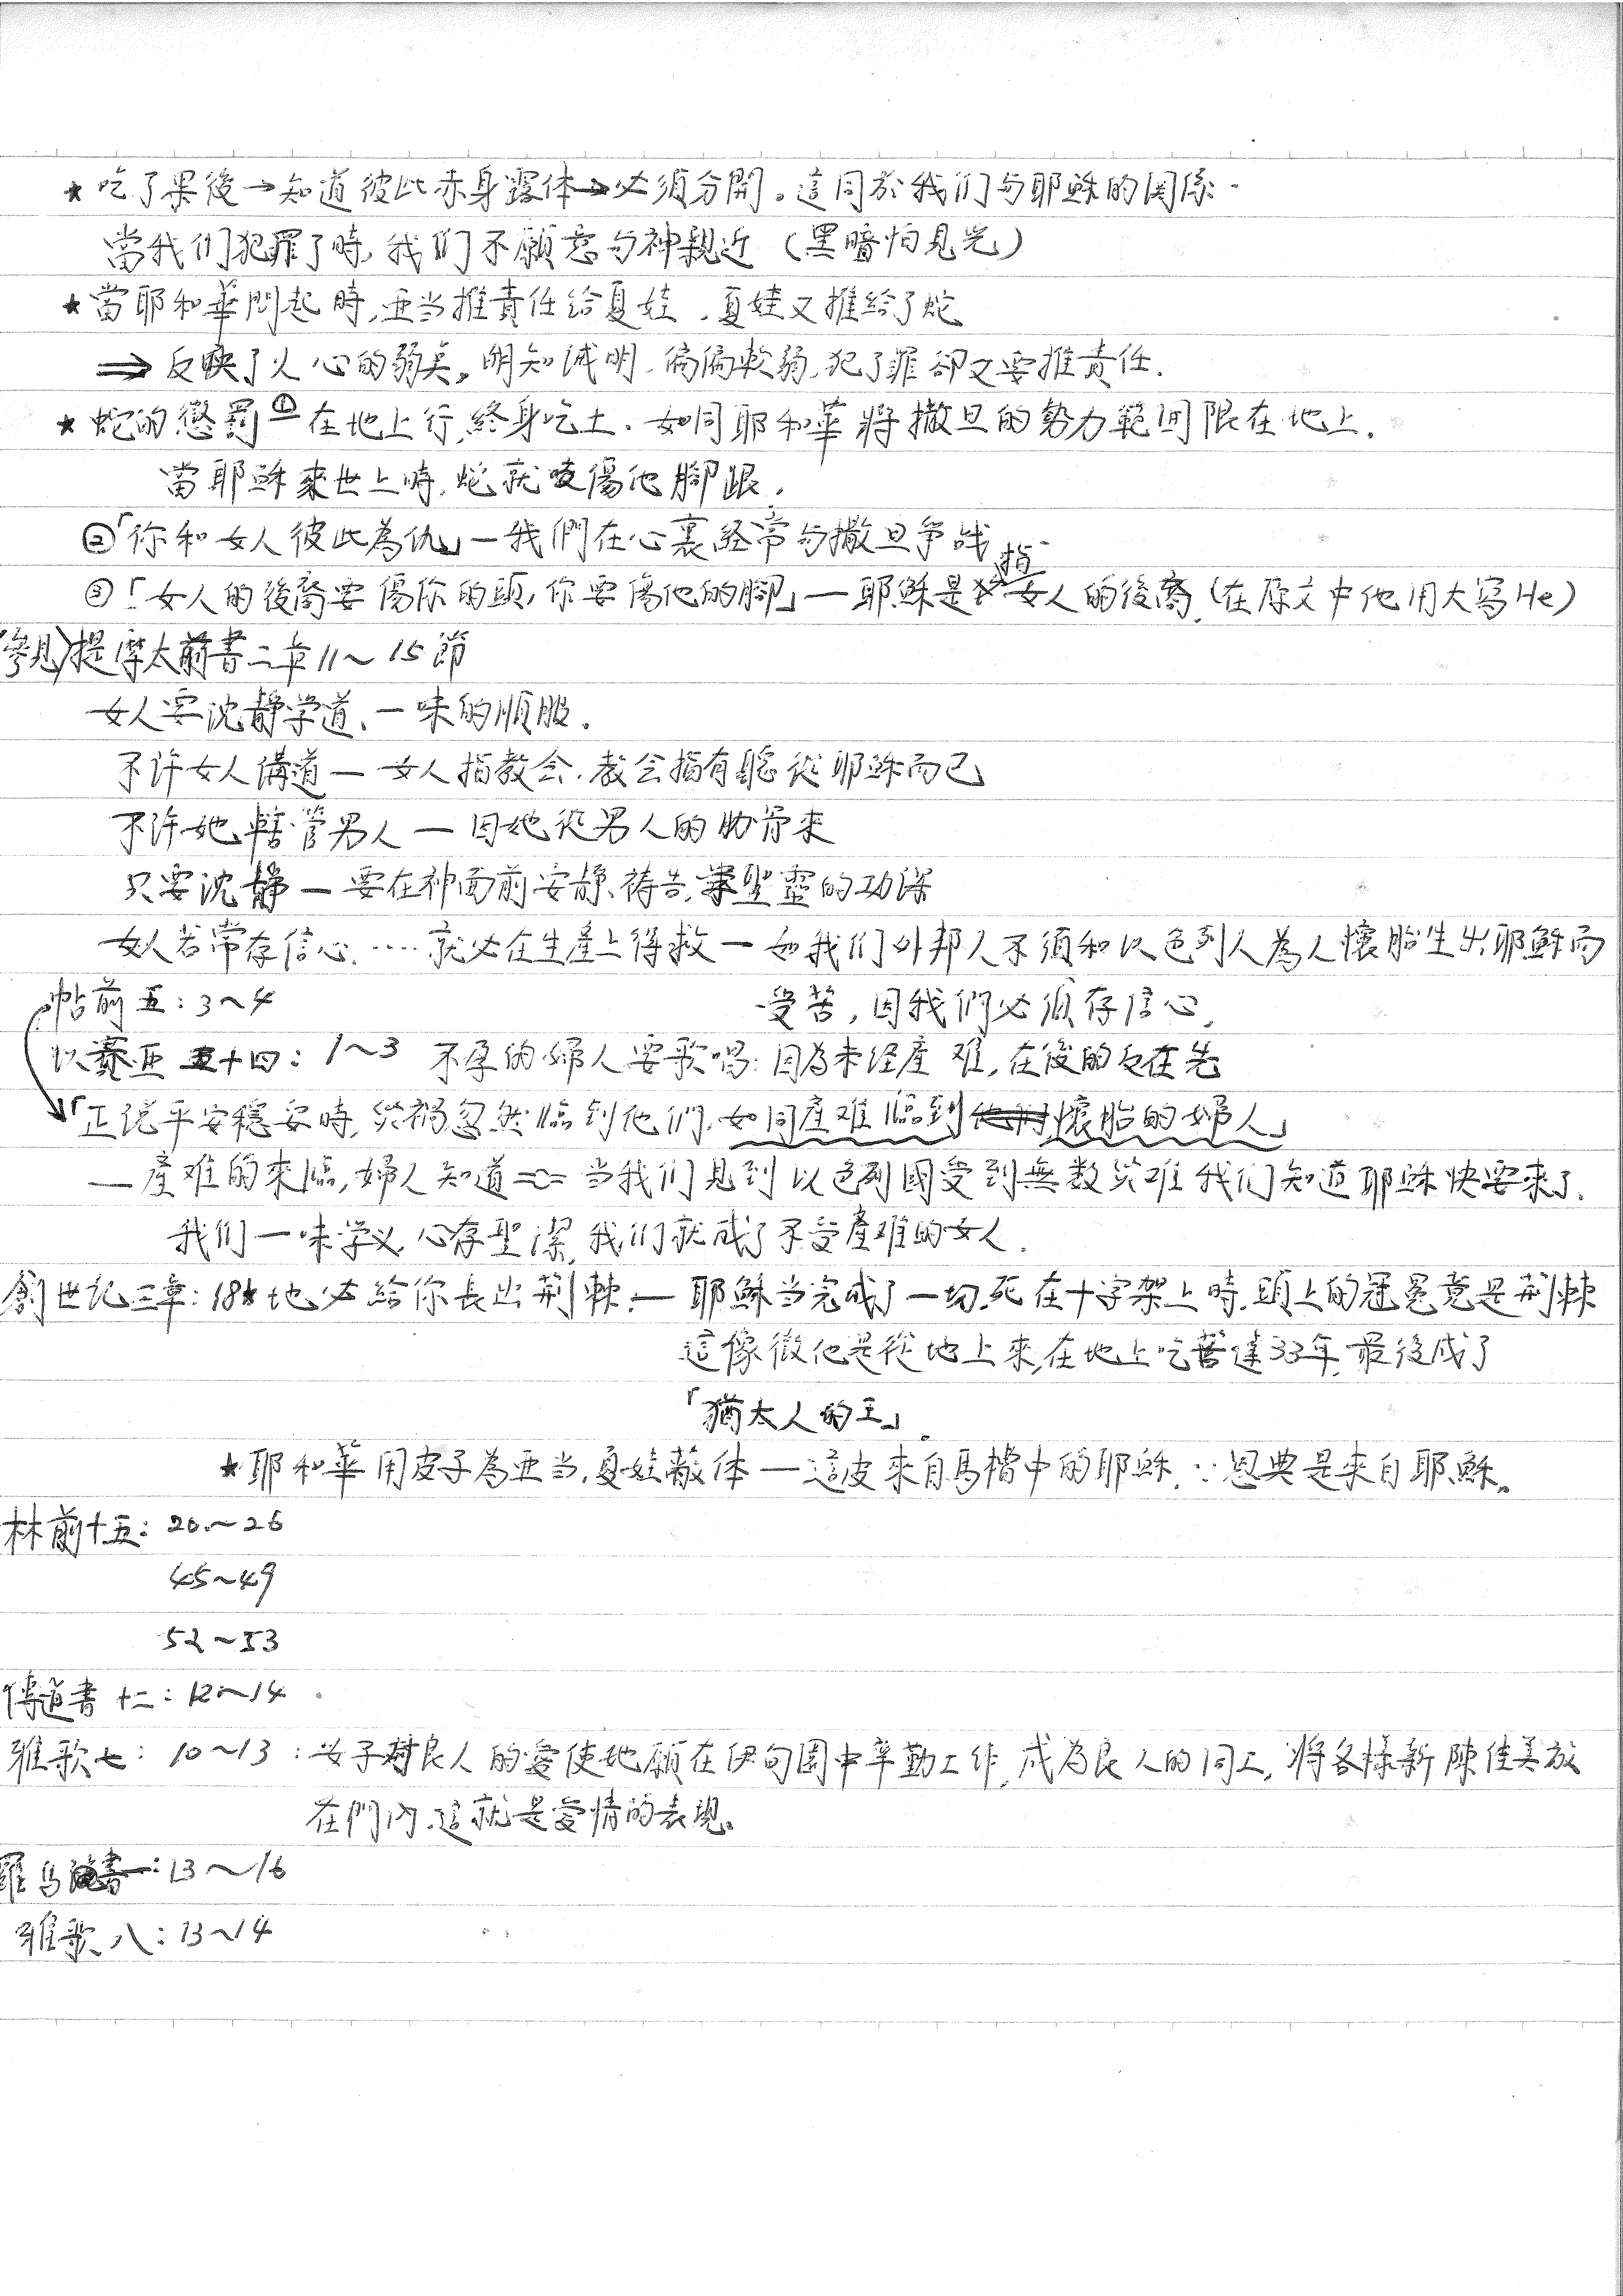 ★ 吃了果後→知道彼此赤身露体→必須分開。這同於我们与耶穌的関係.
當我们犯罪了時,我们不願意与神親近(黑暗怕見光)
★ 當耶和華問起時,亚当推責任给夏娃.夏娃又推給了蛇
⇒ 反映了人心的弱矣。明知誡明.偏偏軟弱.犯了罪卻又要推責任.
★ 蛇的懲罰①—在地上行,終身吃土.如同耶和華將撒旦的勢力範囲限在地上.
當耶穌來世上時,蛇就咬傷他腳跟.
②「你和女人彼此為仇」—我們在心裏経常与撒旦争战
③「女人的後裔要傷你的頭,你要傷他的腳」—耶穌是指女人的後裔.(在原文中他用大寫He)
(參見)提摩太前書二章11～15節
女人要沈靜学道、一味的順服.
不许女人講道—女人指教会.教会指有聽從耶穌而已
不许她轄管男人—因她從男人的肋骨來
只要沈靜—要在神面前安靜、祷告,學聖靈的功課
女人若常存信心.……就必在生產上得救—如我们外邦人不須和以色列人為人懷胎生出耶穌而
受苦,因我們必須存信心.
帖前五:3～4
以賽亚五十四:1～3 不孕的婦人要歌唱:因為未经產难,在後的反在先
「正说平安穩妥時,災禍忽然臨到他們.如同產难臨到懷胎的婦人」
—產难的來臨,婦人知道== 当我们見到以色列國受到無数災难我们知道耶穌快要来了.
我们一味学义,心存聖潔,我们就成了不受產难的女人.
創世記三章:18★地必給你長出荊棘.—耶穌当完成了一切.死在十字架上時.頭上的冠冕竟是荊棘
這像徵他是從地上來,在地上吃苦達33年,最後成了
「猶太人的王」.
★ 耶和華用皮子為亚当,夏娃蔽体—這皮來自馬槽中的耶穌.∵恩典是來自耶穌。
林前十五:20～26
45～49
52～53
傳道書十二:12～14
雅歌七:10～13:女子對良人的愛使她願在伊甸園中辛勤工作,成為良人的同工,將各樣新陳佳美放
在門內.這就是愛情的表現。
羅馬書一:13～16
雅歌八:13～14